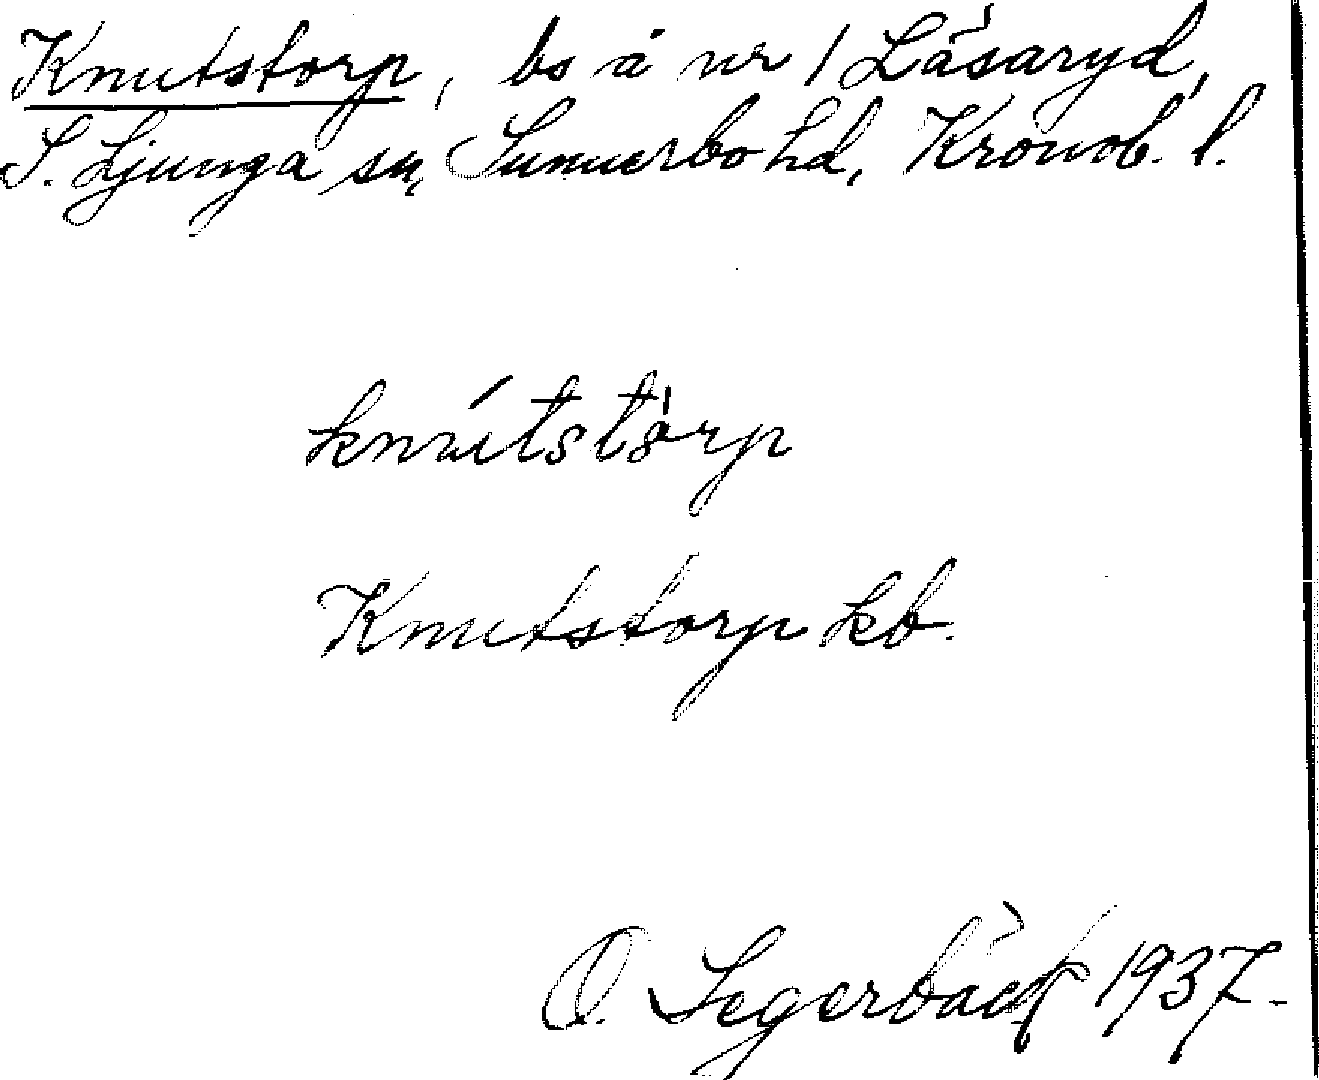 Knutstorp, bs å nr 1 Låsaryd,
S. Ljunga sn, Sunnerbo hd, Kronob. l.
knútstòrp
Knutstorp kb.
O. Segerbäck 1937.